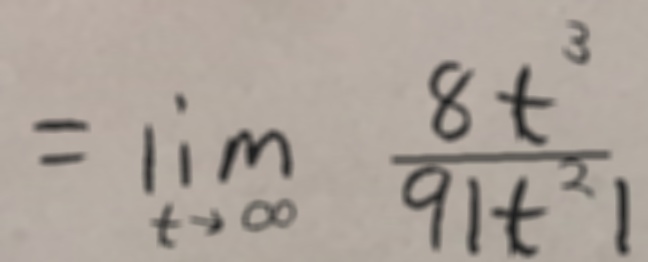 = lim_{t→∞} \frac{8t^3}{9|t^2|}